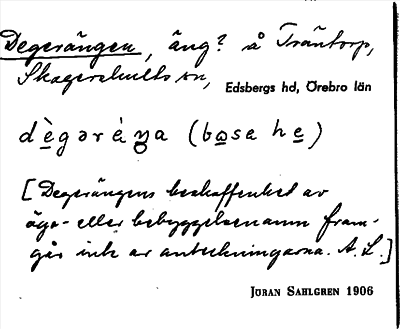 Degerängen, äng? å Träntorp,
Skagershults sn,
Edsbergs hd, Örebro län
dègərèŋa (bɷse he)
[Degerängens beskaffenhet av
ägo- eller bebyggelsenamn fram-
går inte av anteckningarna. A. L.]
JÖRAN SAHLGREN 1906